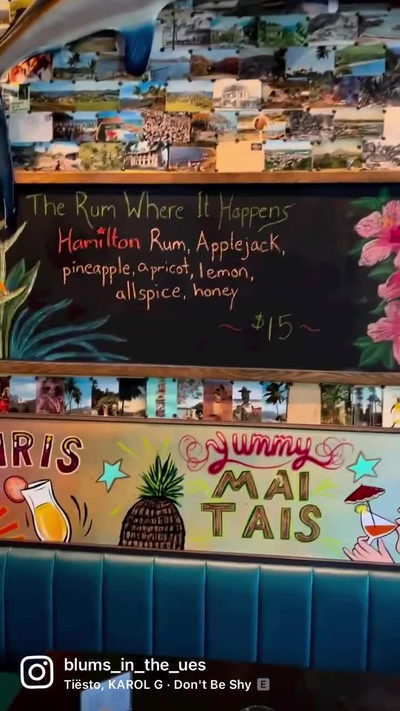 The Rum Where It Happens
Hamilton Rum, Applejack,
pineapple, apricot, lemon,
allspice, honey
~ $15 ~
IRIS
yummy
MAI
TAIS
blums_in_the_ues
Tiësto, KAROL G · Don't Be Shy E